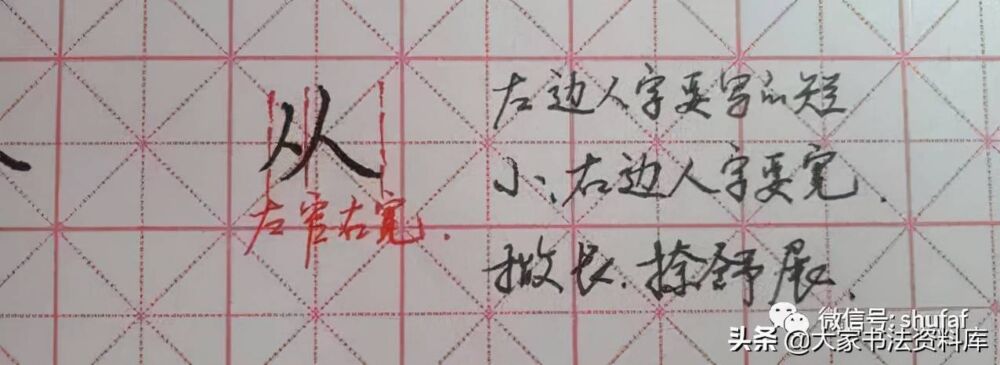 从
左窄右宽.
左边人字要写的短
小、右边人字要宽.
撇长.捺舒展.
微信号: shufaf
头条 @大家书法资料库